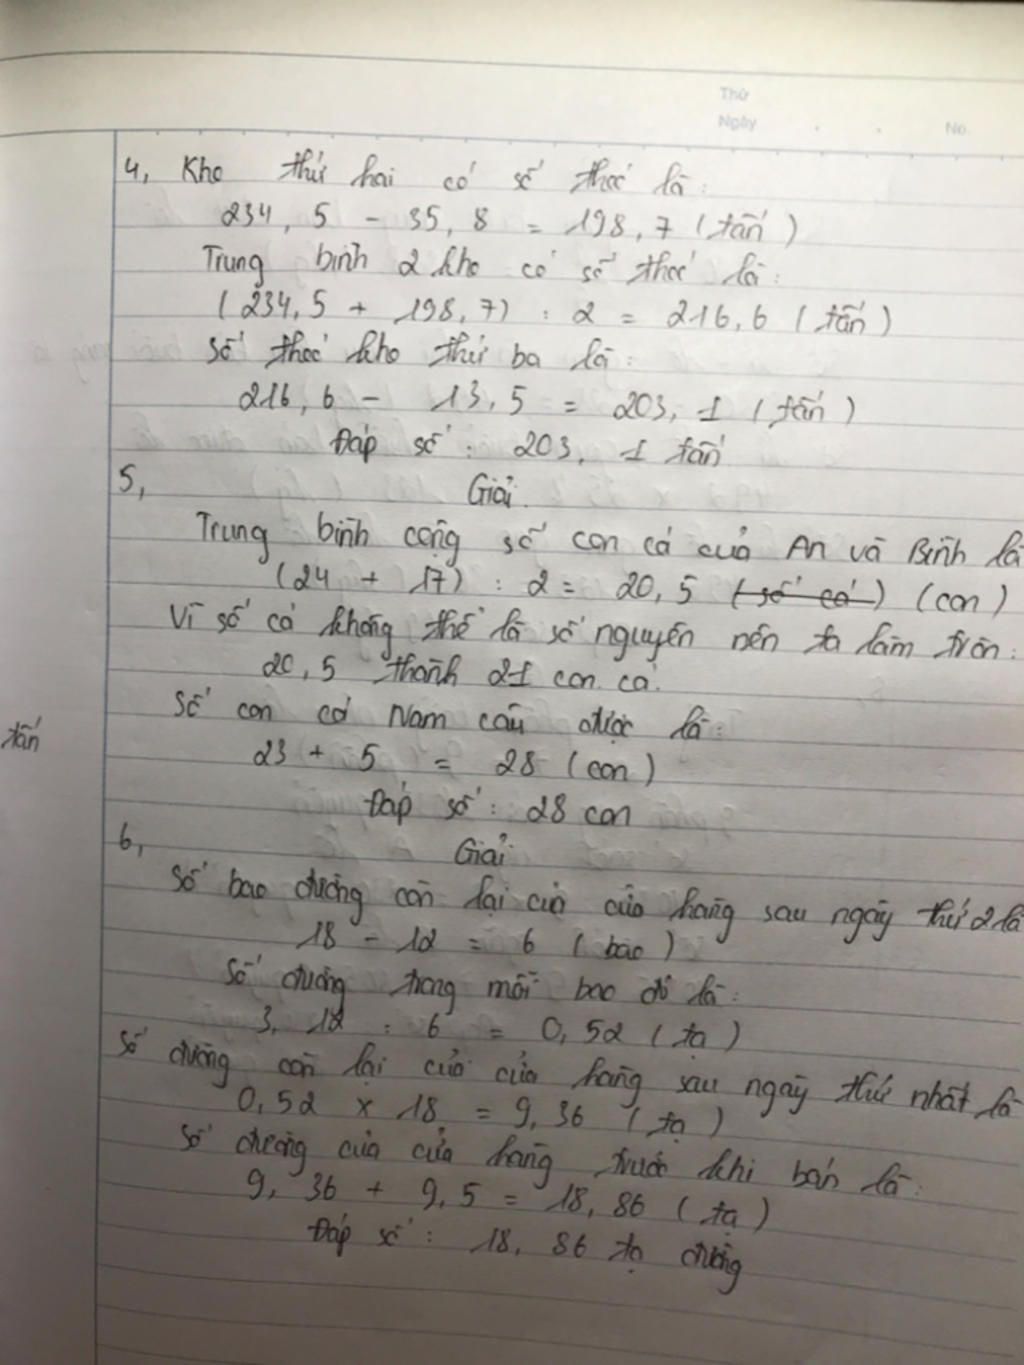 Thứ
Ngày . . No.
4, Kho thứ hai có số thóc là:
234,5 - 35,8 = 198,7 (tấn)
Trung bình 2 kho có số thóc là:
(234,5 + 198,7) : 2 = 216,6 (tấn)
Số thóc kho thứ ba là:
216,6 - 13,5 = 203,1 (tấn)
Đáp số: 203,1 tấn
5,
Giải
Trung bình cộng số con cá của An và Bình là
(24 + 17) : 2 = 20,5 (số cá) (con)
Vì số cá không thể là số nguyên nên ta làm tròn:
20,5 thành 21 con cá.
Số con cá Nam câu được là:
tấn
23 + 5 = 28 (con)
Đáp số: 28 con
6,
Giải
Số bao đường còn lại của cửa hàng sau ngày thứ 2 là
18 - 12 = 6 (bao)
Số đường trong mỗi bao đó là:
3,12 : 6 = 0,52 (tạ)
Số đường còn lại của cửa hàng sau ngày thứ nhất là
0,52 x 18 = 9,36 (tạ)
Số đường của cửa hàng trước khi bán là:
9,36 + 9,5 = 18,86 (tạ)
Đáp số: 18,86 tạ đường